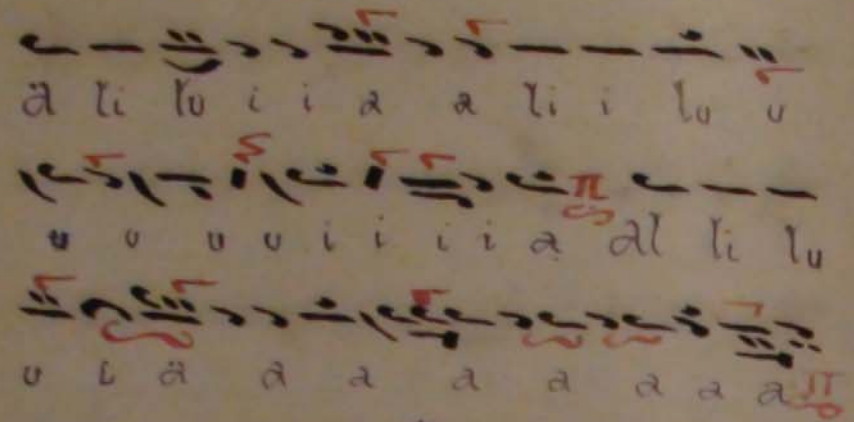 a li lu i i a a li i lu u
u u u u i i i i a al li lu
u i a a a a a a a a